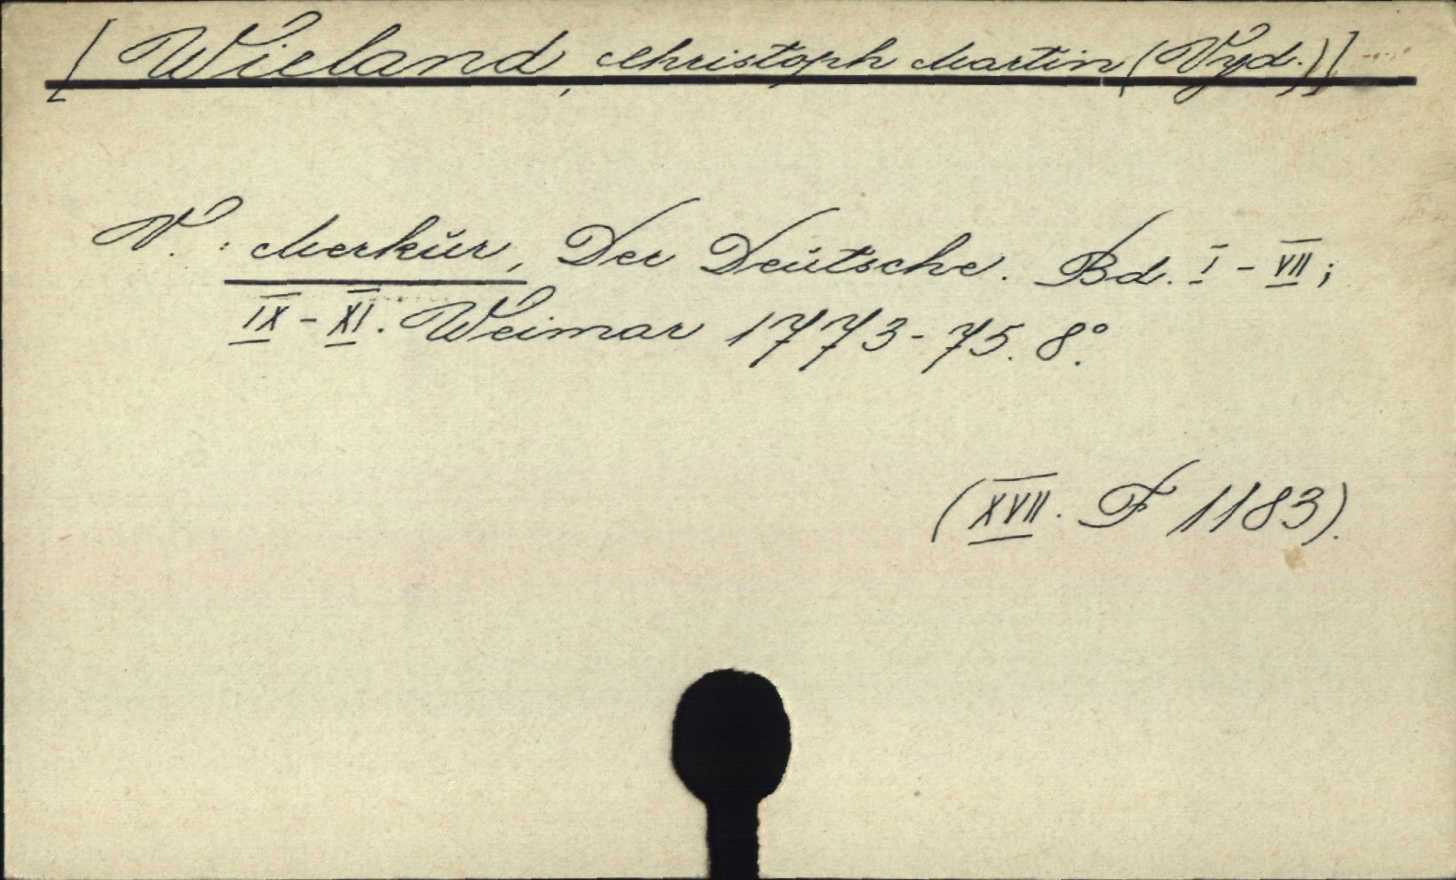 [Wieland, Christoph Martin (Vyd.)]
V.: Merkŭr, Der Deŭtsche. Bd. I - VII;
IX - XI. Weimar 1773-75. 8°.
(XVII. F 1183).